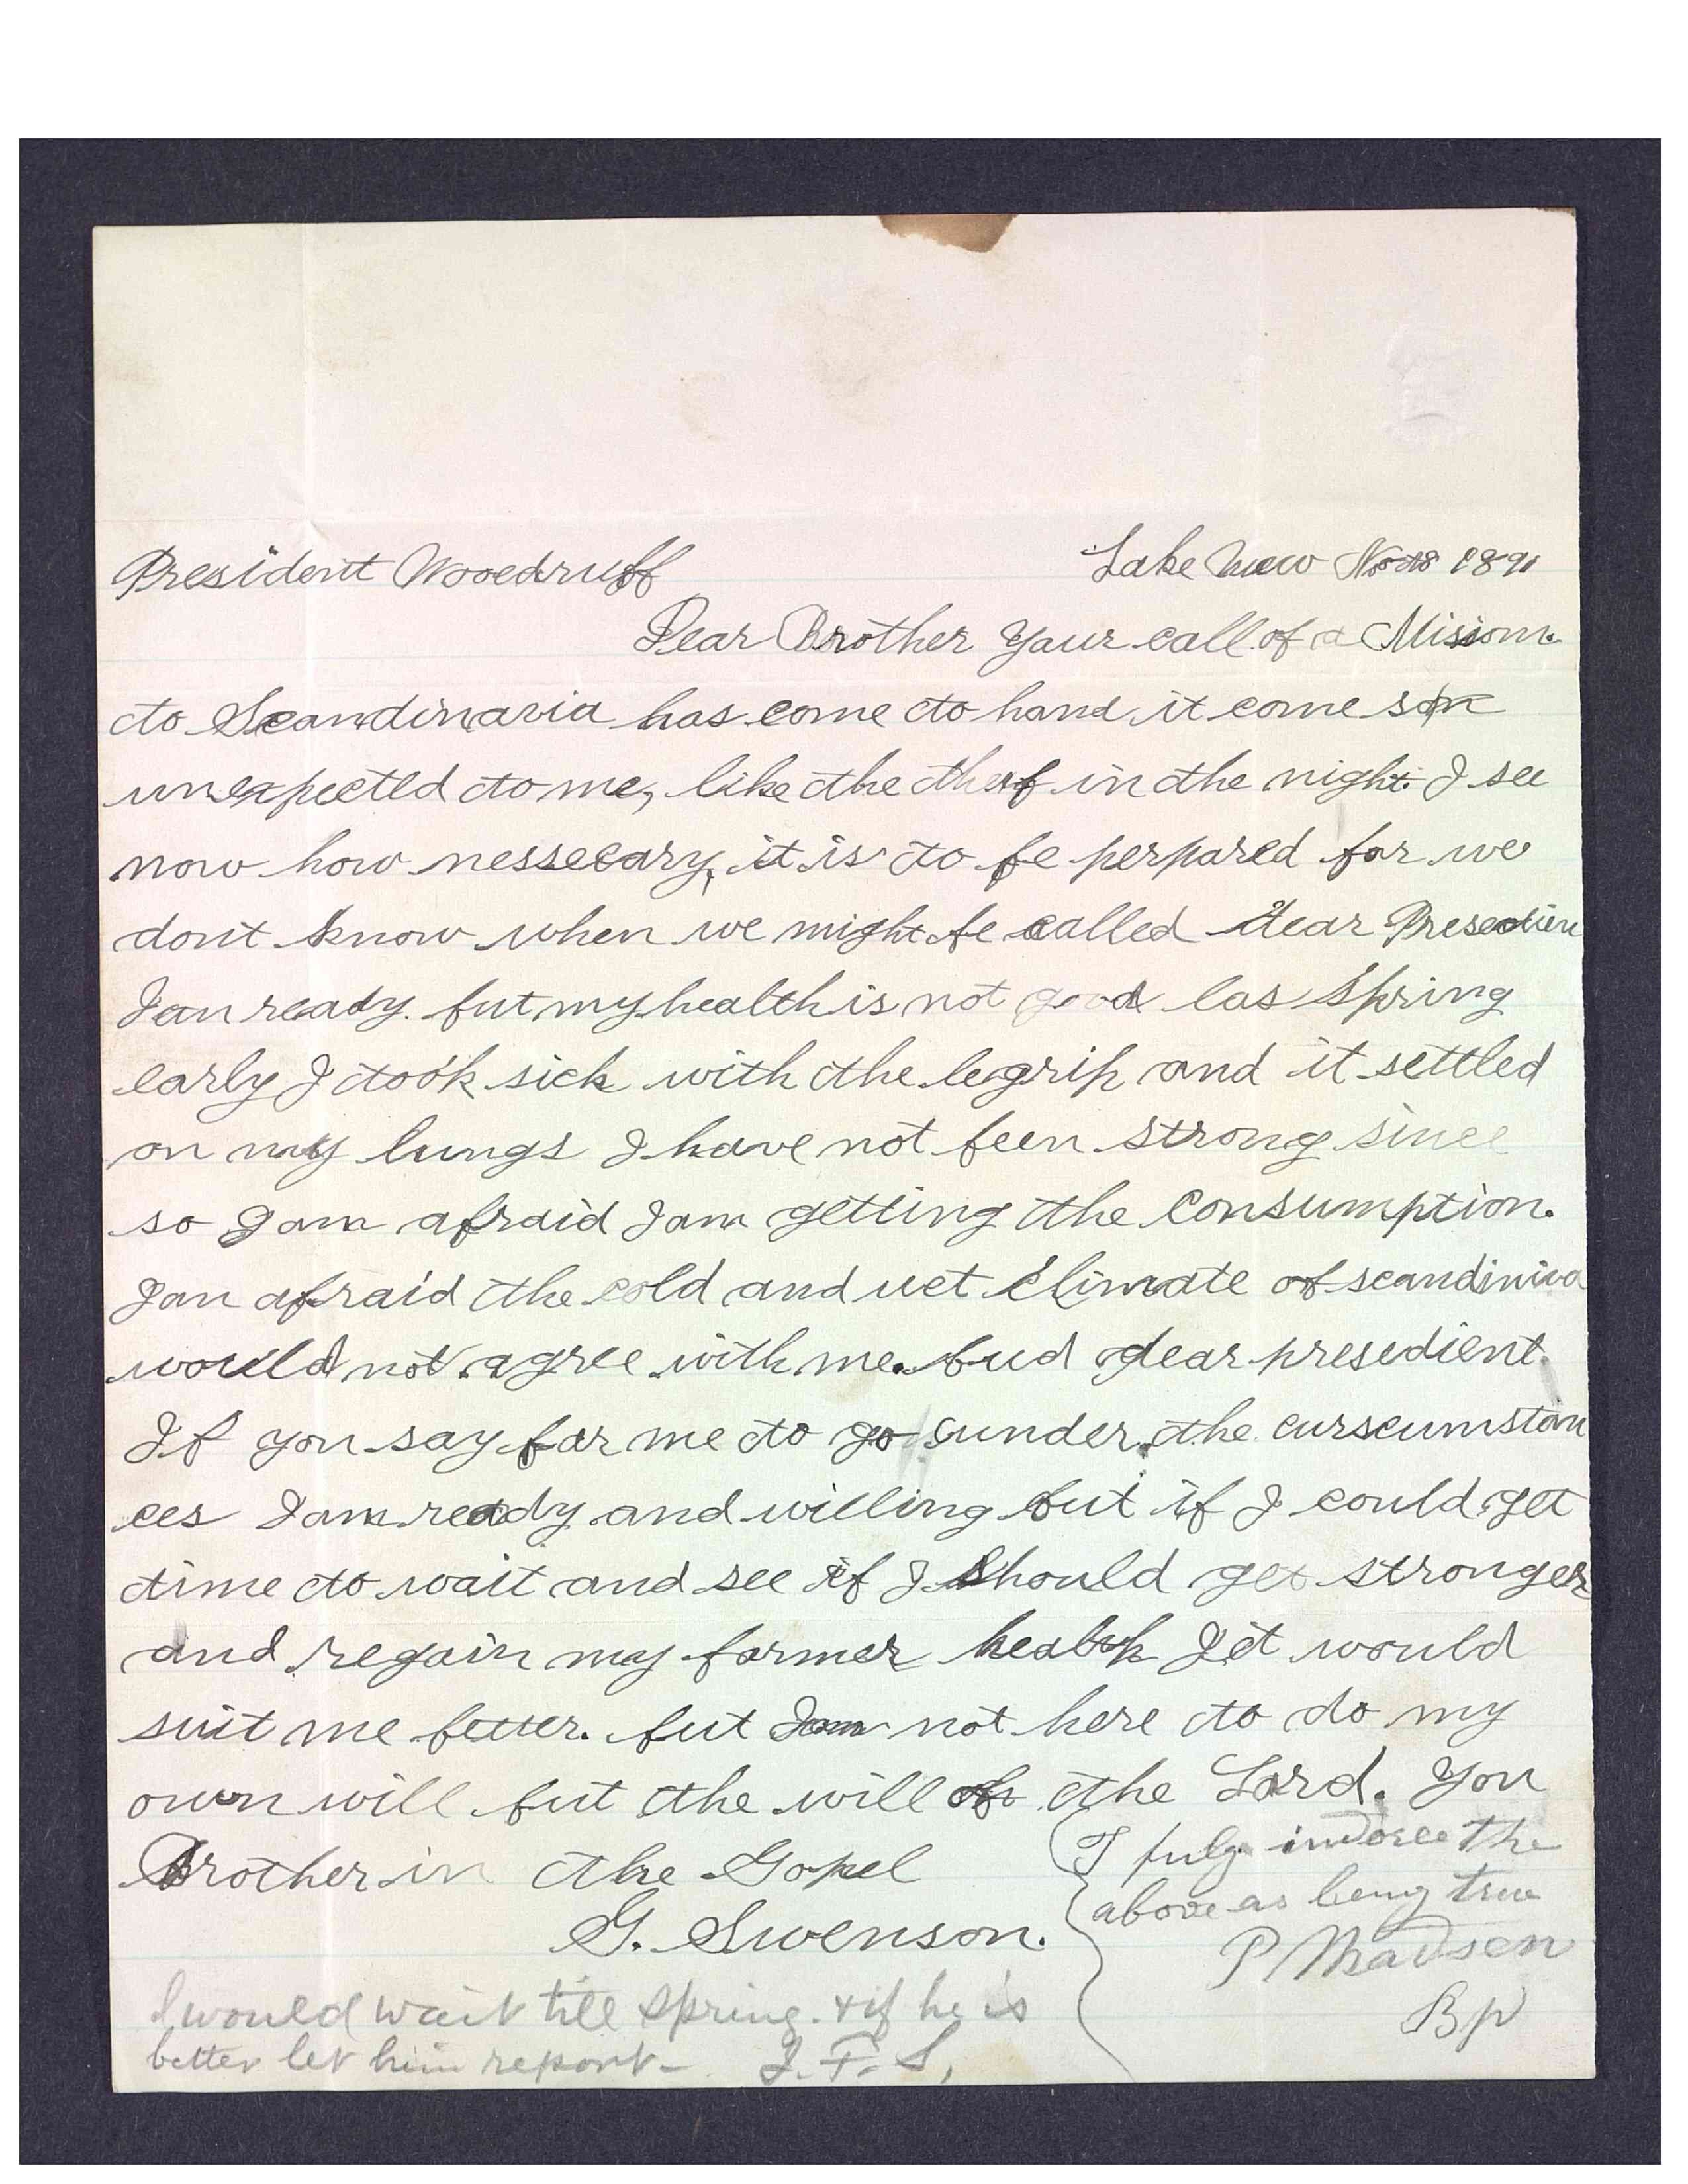 President Woodruff
Lake View Nov 18 1891
Dear Brother Your call of a Mision
to Scandinavia has come to hand it come son
unexpected to me, like the theif in the night. I see
now how nessecary, it is to be perpared for we
dont know when we might be called dear Presedien
I an ready. but my health is not good las Spring
early I took sick with the legrip and it settled
on my lungs I have not been strong since
so I am afraid I am getting the Consumption.
I an afraid the cold and wet climate of scandiniva
would not agree with me. bud dear presedient.
If you say for me to go under the curscumstan
ces I am ready and willing but if I could get
time to wait and see if I should get stronger
and regain my former health it would
suit me better. but I am not here to do my
own will but the will of the Lord. You
Brother in the Gopel
G. Swenson.
I fuly indorce the
above as being true
P Madsen
Bp
I would wait till Spring. & if he is
better let him report— J. F. S.